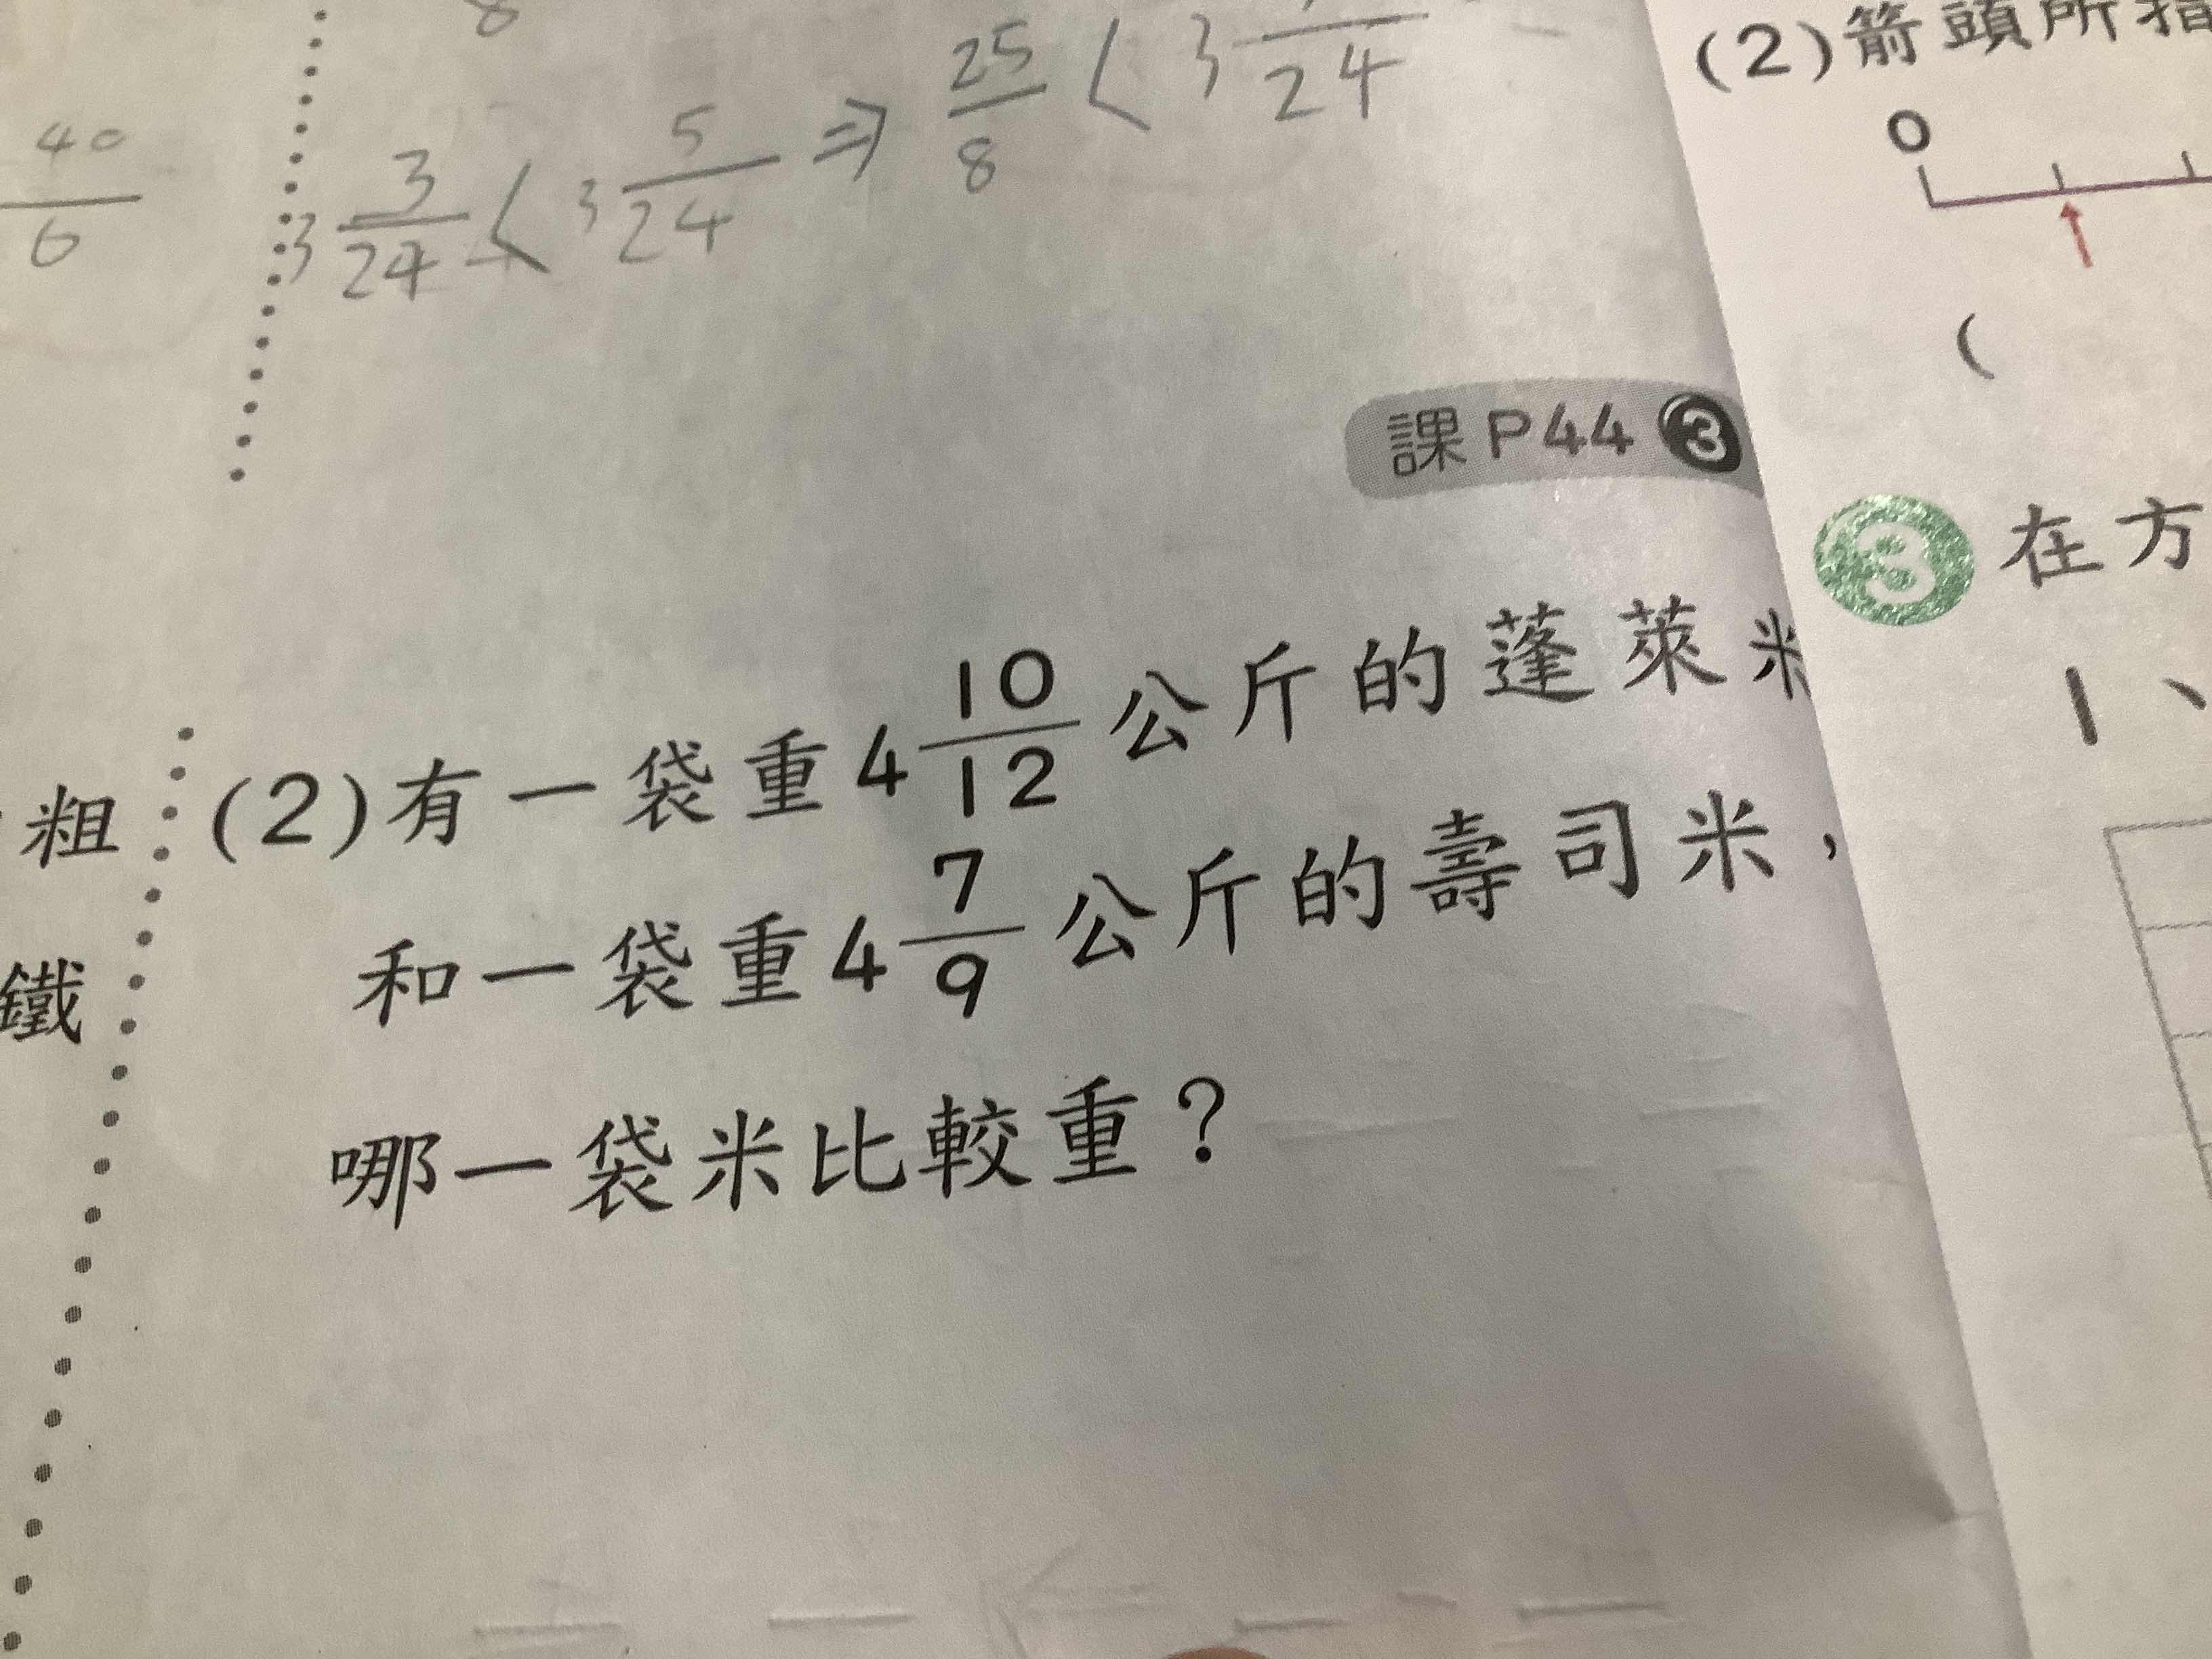 40/6
3 3/24 < 3 5/24 ⇒ 25/8 < 3 /24
課P44 3
(2)有一袋重4 10/12公斤的蓬萊米
和一袋重4 7/9公斤的壽司米，
哪一袋米比較重？
粗
鐵
(2)箭頭所指
0
(
3 在方
1、